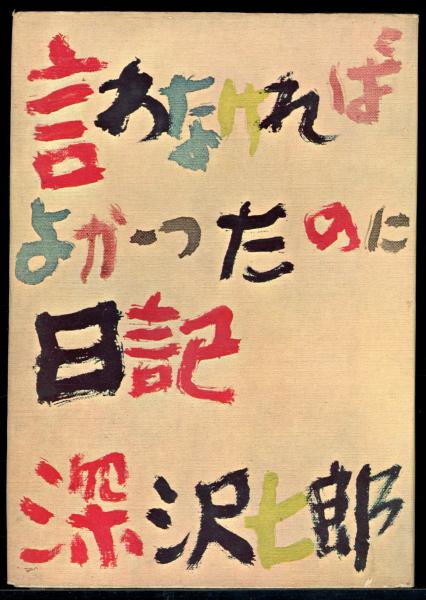 言わなければ
よかったのに
日記
深沢七郎